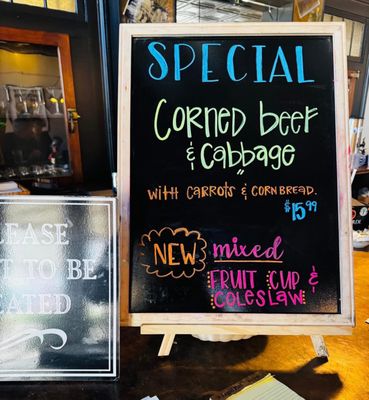 SPECIAL
Corned beef
& Cabbage
"
with CARROTS & CORNBREAD.
$15.99
NEW
mixed
FRUIT CUP &
COLESLAW
TO BE